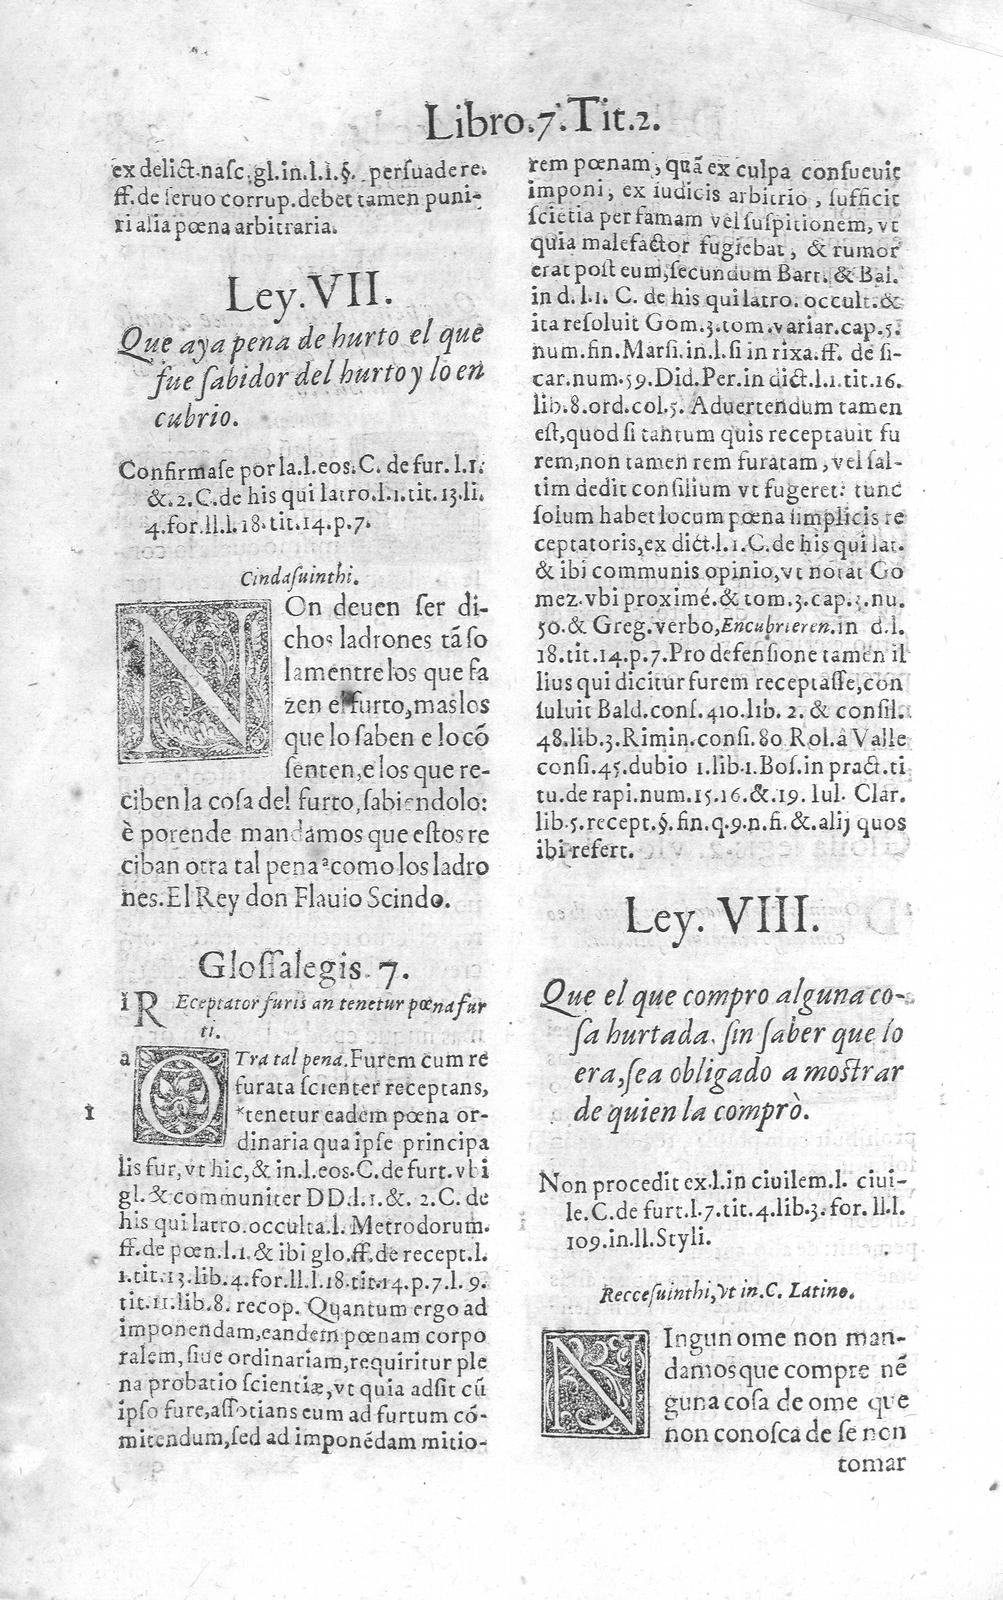 Libro.7.Tit.2.
ex delict.nasc.gl.in.l.i.§. persuadere.
ff.de seruo corrup.debet tamen puni-
ri alia pœna arbitraria.
Ley.VII.
Que aya pena de hurto el que
fue sabidor del hurto y lo en
cubrio.
Confirmase por la.l.eos.C. de fur.l.1.
&.2.C.de his qui latro.l.1.tit.13.li.
4.for.ll.l.18.tit.14.p.7.
Cindasuinthi.
NOn deuen ser di-
chos ladrones tã so
lamentre los que fa
zen el furto, mas los
que lo saben e lo cõ
senten,e los que re-
ciben la cosa del furto, sabiendolo:
è porende mandamos que estos re
ciban otra tal pena ᵃcomo los ladro
nes.El Rey don Flauio Scindo.
Glossa legis 7.
1 REceptator furis an tenetur pœna fur
ti.
a OTra tal pena.Furem cum re
furata scienter receptans,
1 *tenetur eadem pœna or-
dinaria qua ipse principa
lis fur, vt hic,& in.l.eos.C.de furt.vbi
gl.& communiter DD.l.1.&. 2.C.de
his qui latro.occulta.l. Metrodorum.
ff.de pœn.l.1.& ibi glo.ff.de recept.l.
1.tit.13.lib.4.for.ll.l.18.tit.14.p.7.l.9.
tit.11.lib.8. recop. Quantum ergo ad
imponendam,eandem pœnam corpo
ralem, siue ordinariam,requiritur ple
na probatio scientiæ,vt quia adsit cũ
ipso fure,assotians eum ad furtum có-
mitendum,sed ad imponédam mitio-
rem pœnam, quã ex culpa consueuit
imponi, ex iudicis arbitrio, sufficit
scietia per famam vel suspitionem, vt
quia malefactor fugiebat, & rumor
erat post eum,secundum Bart. & Bal.
in d. l.1. C. de his qui latro. occult.&
ita resoluit Gom.3.tom.variar.cap.5.
num.fin.Marsi.in.l.si in rixa.ff. de si-
car.num.59.Did.Per.in dict.l.1.tit.16.
lib.8.ord.col.5. Aduertendum tamen
est,quod si tantum quis receptauit fu
rem,non tamen rem furatam, vel sal-
tim dedit consilium vt fugeret: tunc
solum habet locum pœna simplicis re
ceptatoris,ex dict.l.1.C.de his qui lat.
& ibi communis opinio,vt notat Go
mez.vbi proximé.& tom.3.cap.3.nu.
50.& Greg.verbo,Encubrieren.in d.l.
18.tit.14.p.7.Pro defensione tamen il
lius qui dicitur furem receptasse,con
suluit Bald.cons.410.lib. 2. & consil.
48.lib.3.Rimin.consi.80 Rol.â Valle
consi.45.dubio 1.lib.1.Bos.in pract.ti
tu.de rapi.num.15.16.&.19. Iul. Clar.
lib.5.recept.§.fin.q.9.n.fi.&.alij quos
ibi refert.
Ley. VIII.
Que el que compro alguna co-
sa hurtada, sin saber que lo
era,sea obligado a mostrar
de quien la comprò.
Non procedit ex.l.in ciuilem.l. ciui-
le.C.de furt.l.7.tit.4.lib.3.for.ll.l.
109.in.ll.Styli.
Reccesuinthi,vt in.C. Latino.
NIngun ome non man-
damos que compre nẽ
guna cosa de ome que
non conosca de se non
tomar